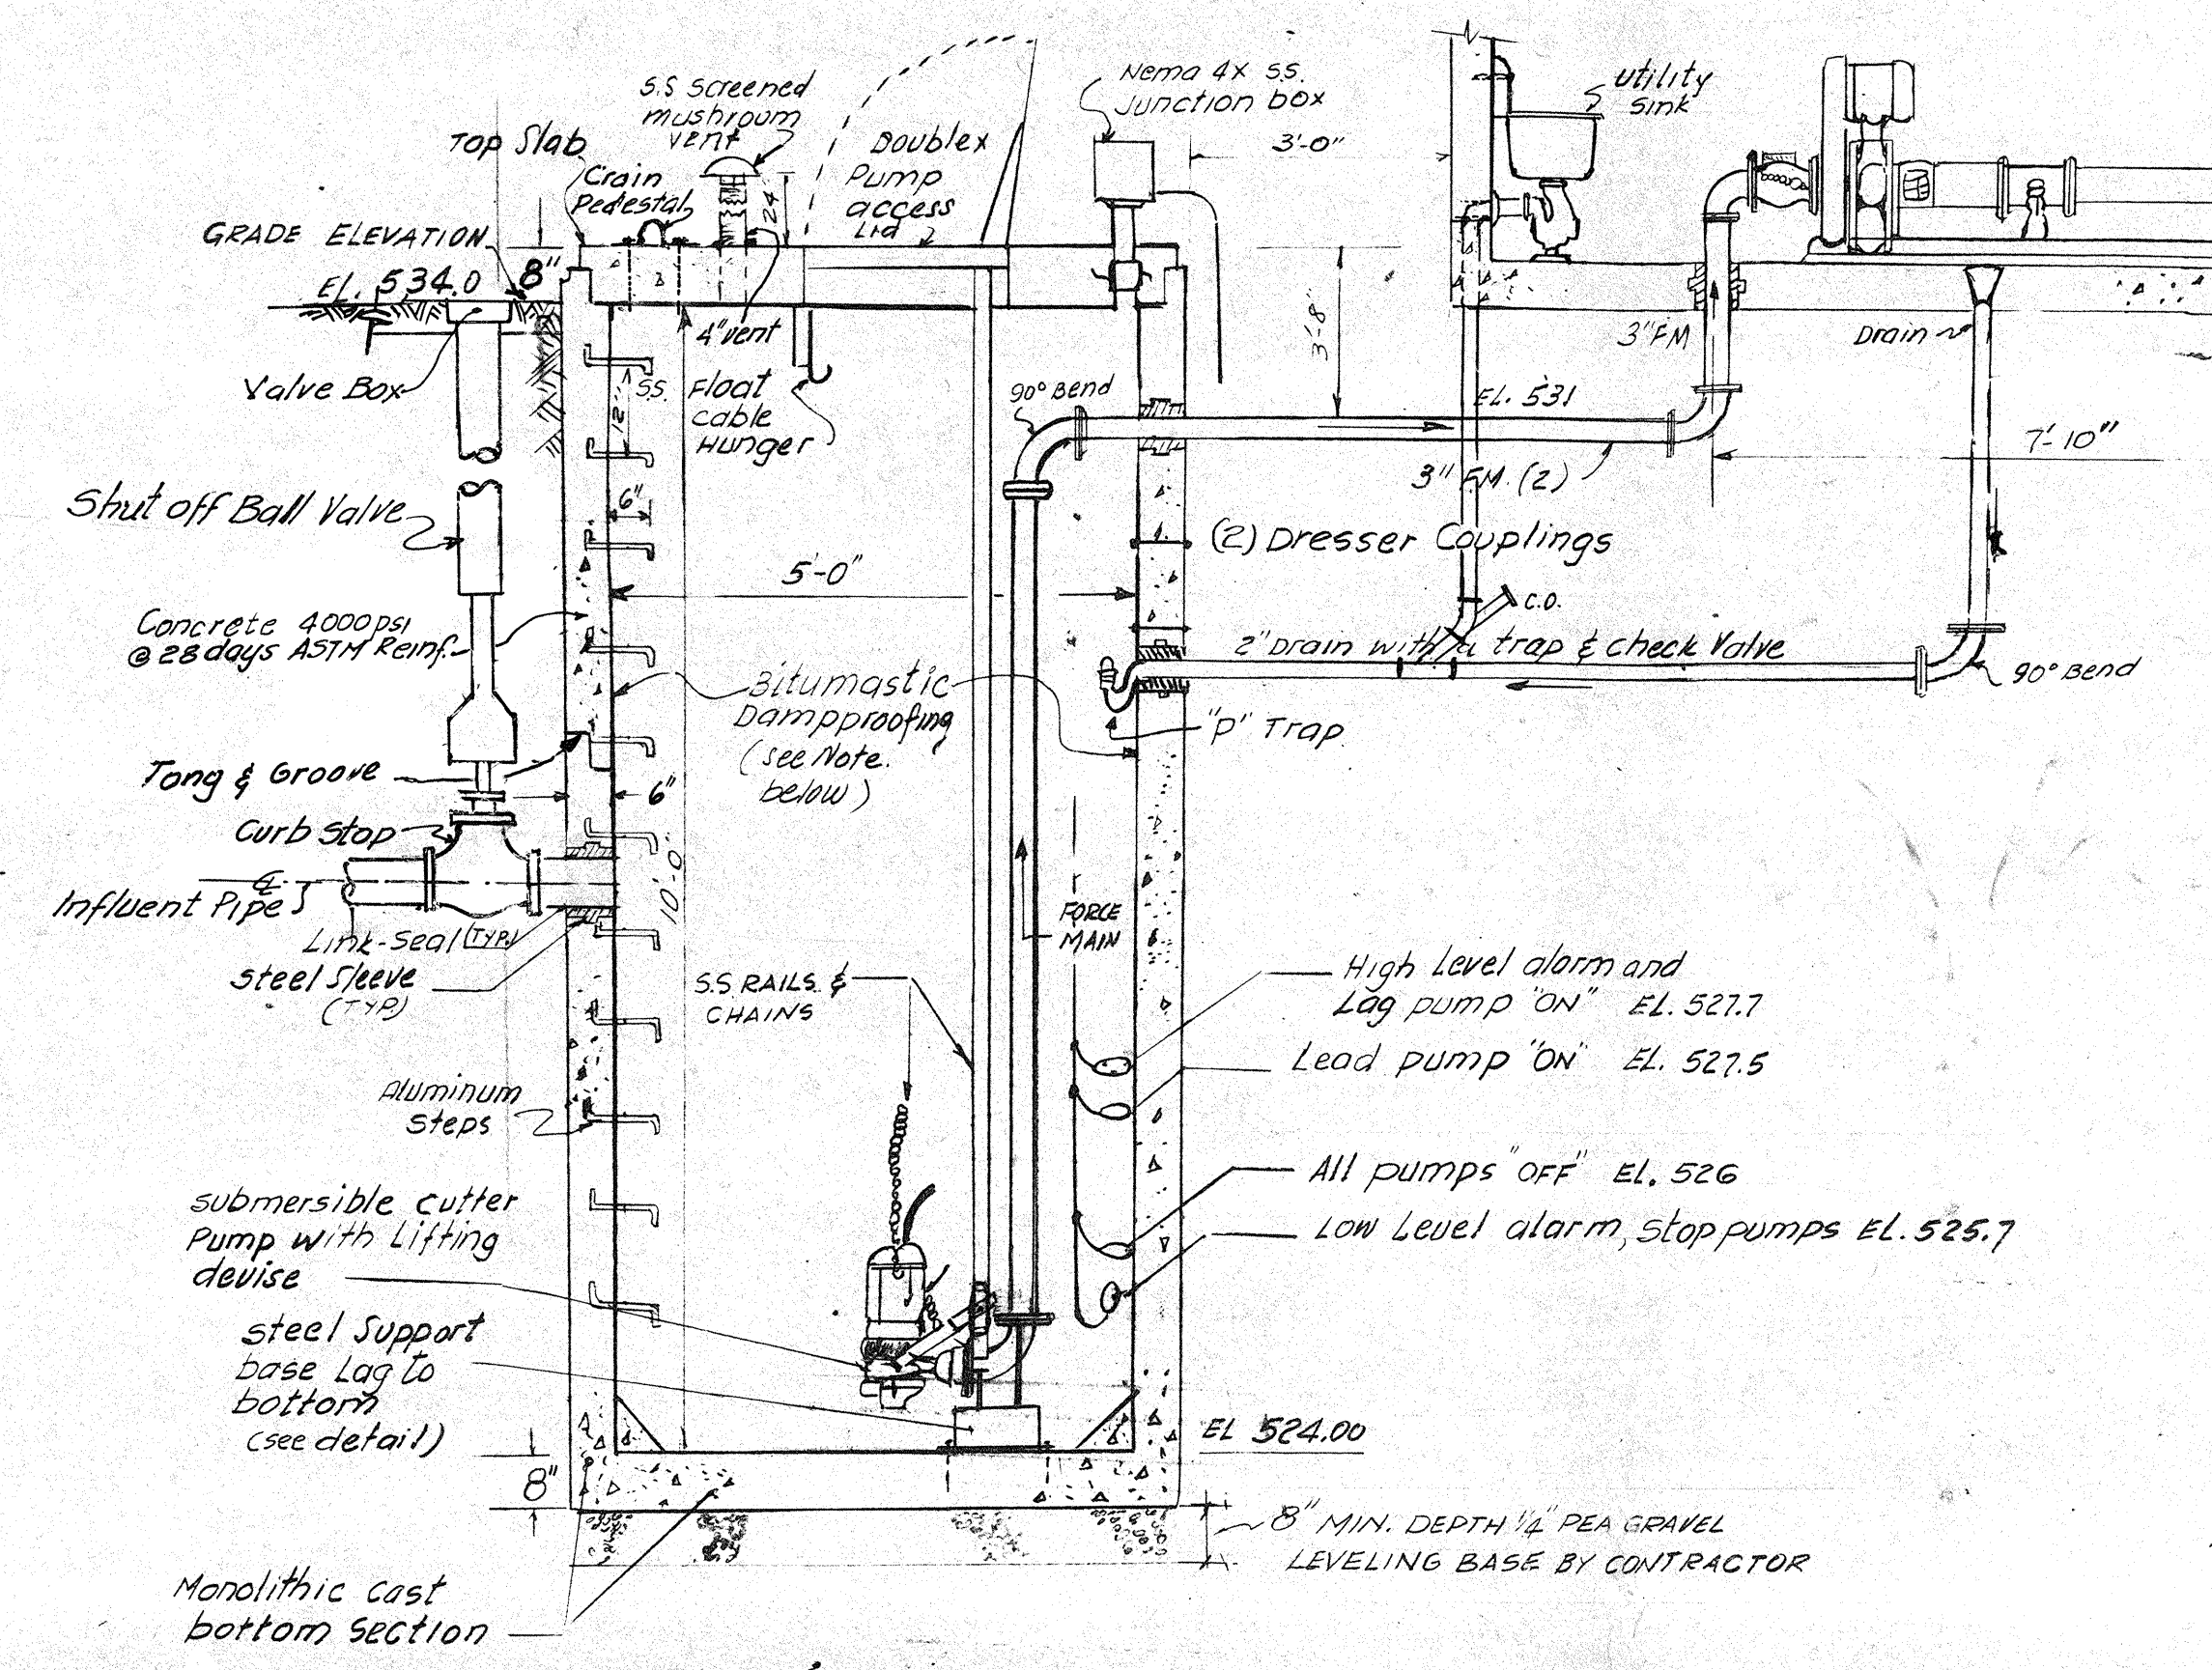 Nema 4X S.S.
Junction box
utility
sink
S.S Screened
mushroom
vent
Top Slab
Doublex
Pump
access
Lid
3'-0"
Crain
Pedestal
24
GRADE ELEVATION
EL. 534.0
8"
4" vent
3'-8"
3" FM
Drain
Valve Box
12"
S.S.
Float
cable
Hunger
90° Bend
EL. 531
7'-10"
3" F.M. (2)
Shut off Ball Valve
6"
(2) Dresser Couplings
5'-0"
C.O.
Concrete 4000 psi
@ 28 days ASTM Reinf.
2" Drain with a trap & check Valve
90° Bend
Bitumastic
Dampproofing
(see Note.
below)
"P" Trap
Tong & Groove
6"
Curb Stop
10'-0"
℄
Influent Pipe
FORCE
MAIN
Link-Seal (TYP.)
Steel Sleeve
(TYP)
S.S RAILS &
CHAINS
High Level alarm and
Lag pump "ON" EL. 527.7
Lead pump "ON" EL. 527.5
Aluminum
Steps
All pumps "OFF" EL. 526
Low Level alarm, Stop pumps EL. 525.7
Submersible Cutter
Pump with Lifting
devise
Steel Support
base Lag to
bottom
(see detail)
EL 524.00
8"
8" MIN. DEPTH 1/4" PEA GRAVEL
LEVELING BASE BY CONTRACTOR
Monolithic Cast
bottom Section